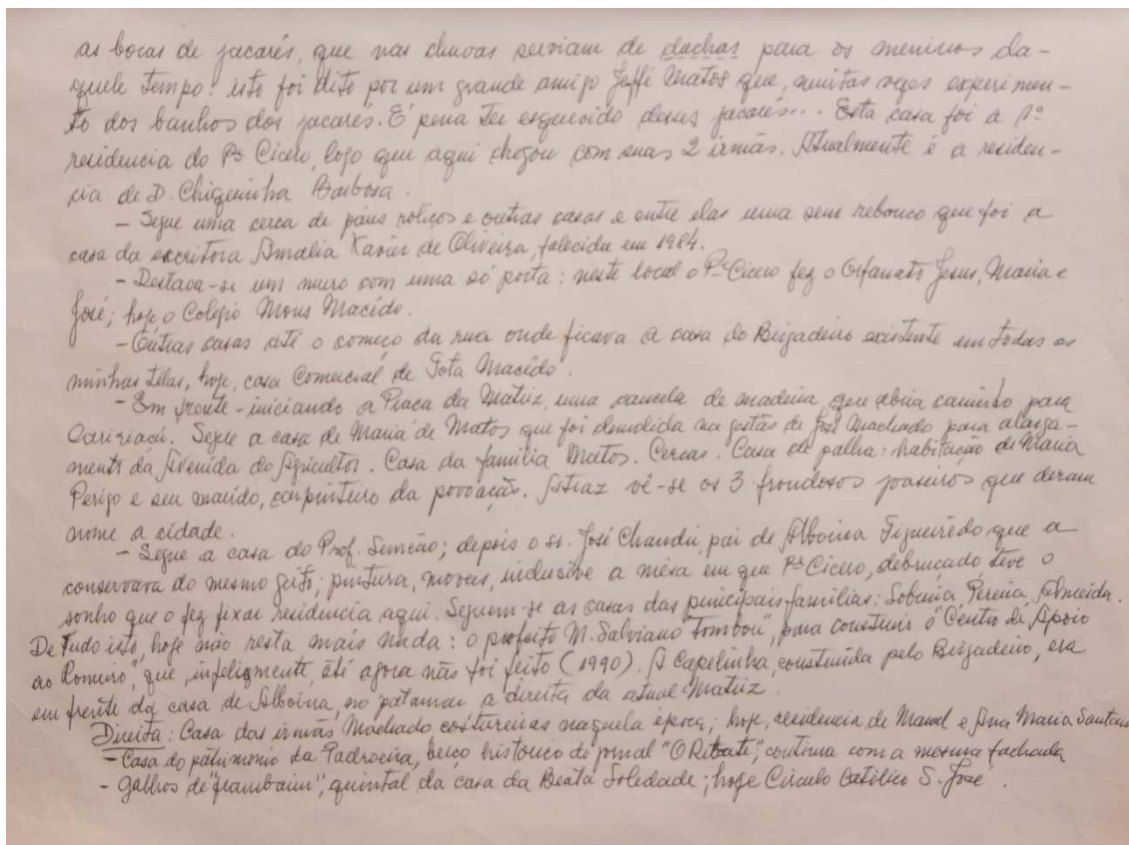 as bocas de jacarés, que nas chuvas serviam de duchas para os meninos da-
quele tempo! isto foi dito por um grande amigo Jeffé Matos que, muitas vezes experimen-
to dos banhos dos jacarés. É pena ter esquecido desses jacarés... Esta casa foi a 1ª
residencia do Pe Cicero, logo que aqui chegou com suas 2 irmãs. Atualmente é a residen-
cia de D. Chiquinha Barbosa.
- Segue uma cerca de páus roliços e outras casas e entre elas uma sem rebouco que foi a
casa da escritora Amalia Xavier de Oliveira, falecida em 1984.
- Destaca-se um muro com uma só porta: neste local o Pe Cicero fez o Orfanato Jesus, Maria e
José; hoje o Colégio Mons Macêdo.
- Outras casas até o começo da rua onde ficava a casa do Brigadeiro existente em todas as
minhas telas, hoje, casa Comercial de Tota Macêdo.
- Em frente - iniciando a Praca da Matriz, uma cancela de madeira que abria caminho para
Caririaçú. Segue a casa de Maria de Matos que foi demolida na gestão de José Machado para alarga-
mento da Avenida do Agricultor. Casa da familia Matos. Cercas. Casa de palha: habitação de Maria
Perigo e seu marido, carpinteiro da povoação. Atraz vê-se os 3 frondosos joaseiros que deram
nome a cidade.
- Segue a casa do Prof. Semeão; depois o sr. José Chandú, pai de Alboina Figueirêdo que a
conservava do mesmo jeito; pintura, moveis, inclusive a mêsa em que Pe Cicero, debrucado teve o
sonho que o fez fixar residencia aqui. Seguem-se as casas das principais familias: Sobreira, Pereira, Almeida.
De tudo isto, hoje não resta mais nada: o prefeito M. Salviano "Tombou", para construir o "Centro de Apoio
ao Romeiro", que, infelizmente, até agora não foi feito (1990). A Capelinha, construida pelo Brigadeiro, era
em frente da casa de Alboina, no patamar a direita da atual Matriz.
Direita: Casa das irmãs Machado costureiras naquela época; hoje, residencia de Manoel e Ana Maria Santana
- Casa do patrimonio da Padroeira, berço historico do jornal "O Rebate"; continua com a mesma fachada
- Galhos de "frambaim", quintal da casa da Beata Soledade; hoje Circulo Católico S. José.